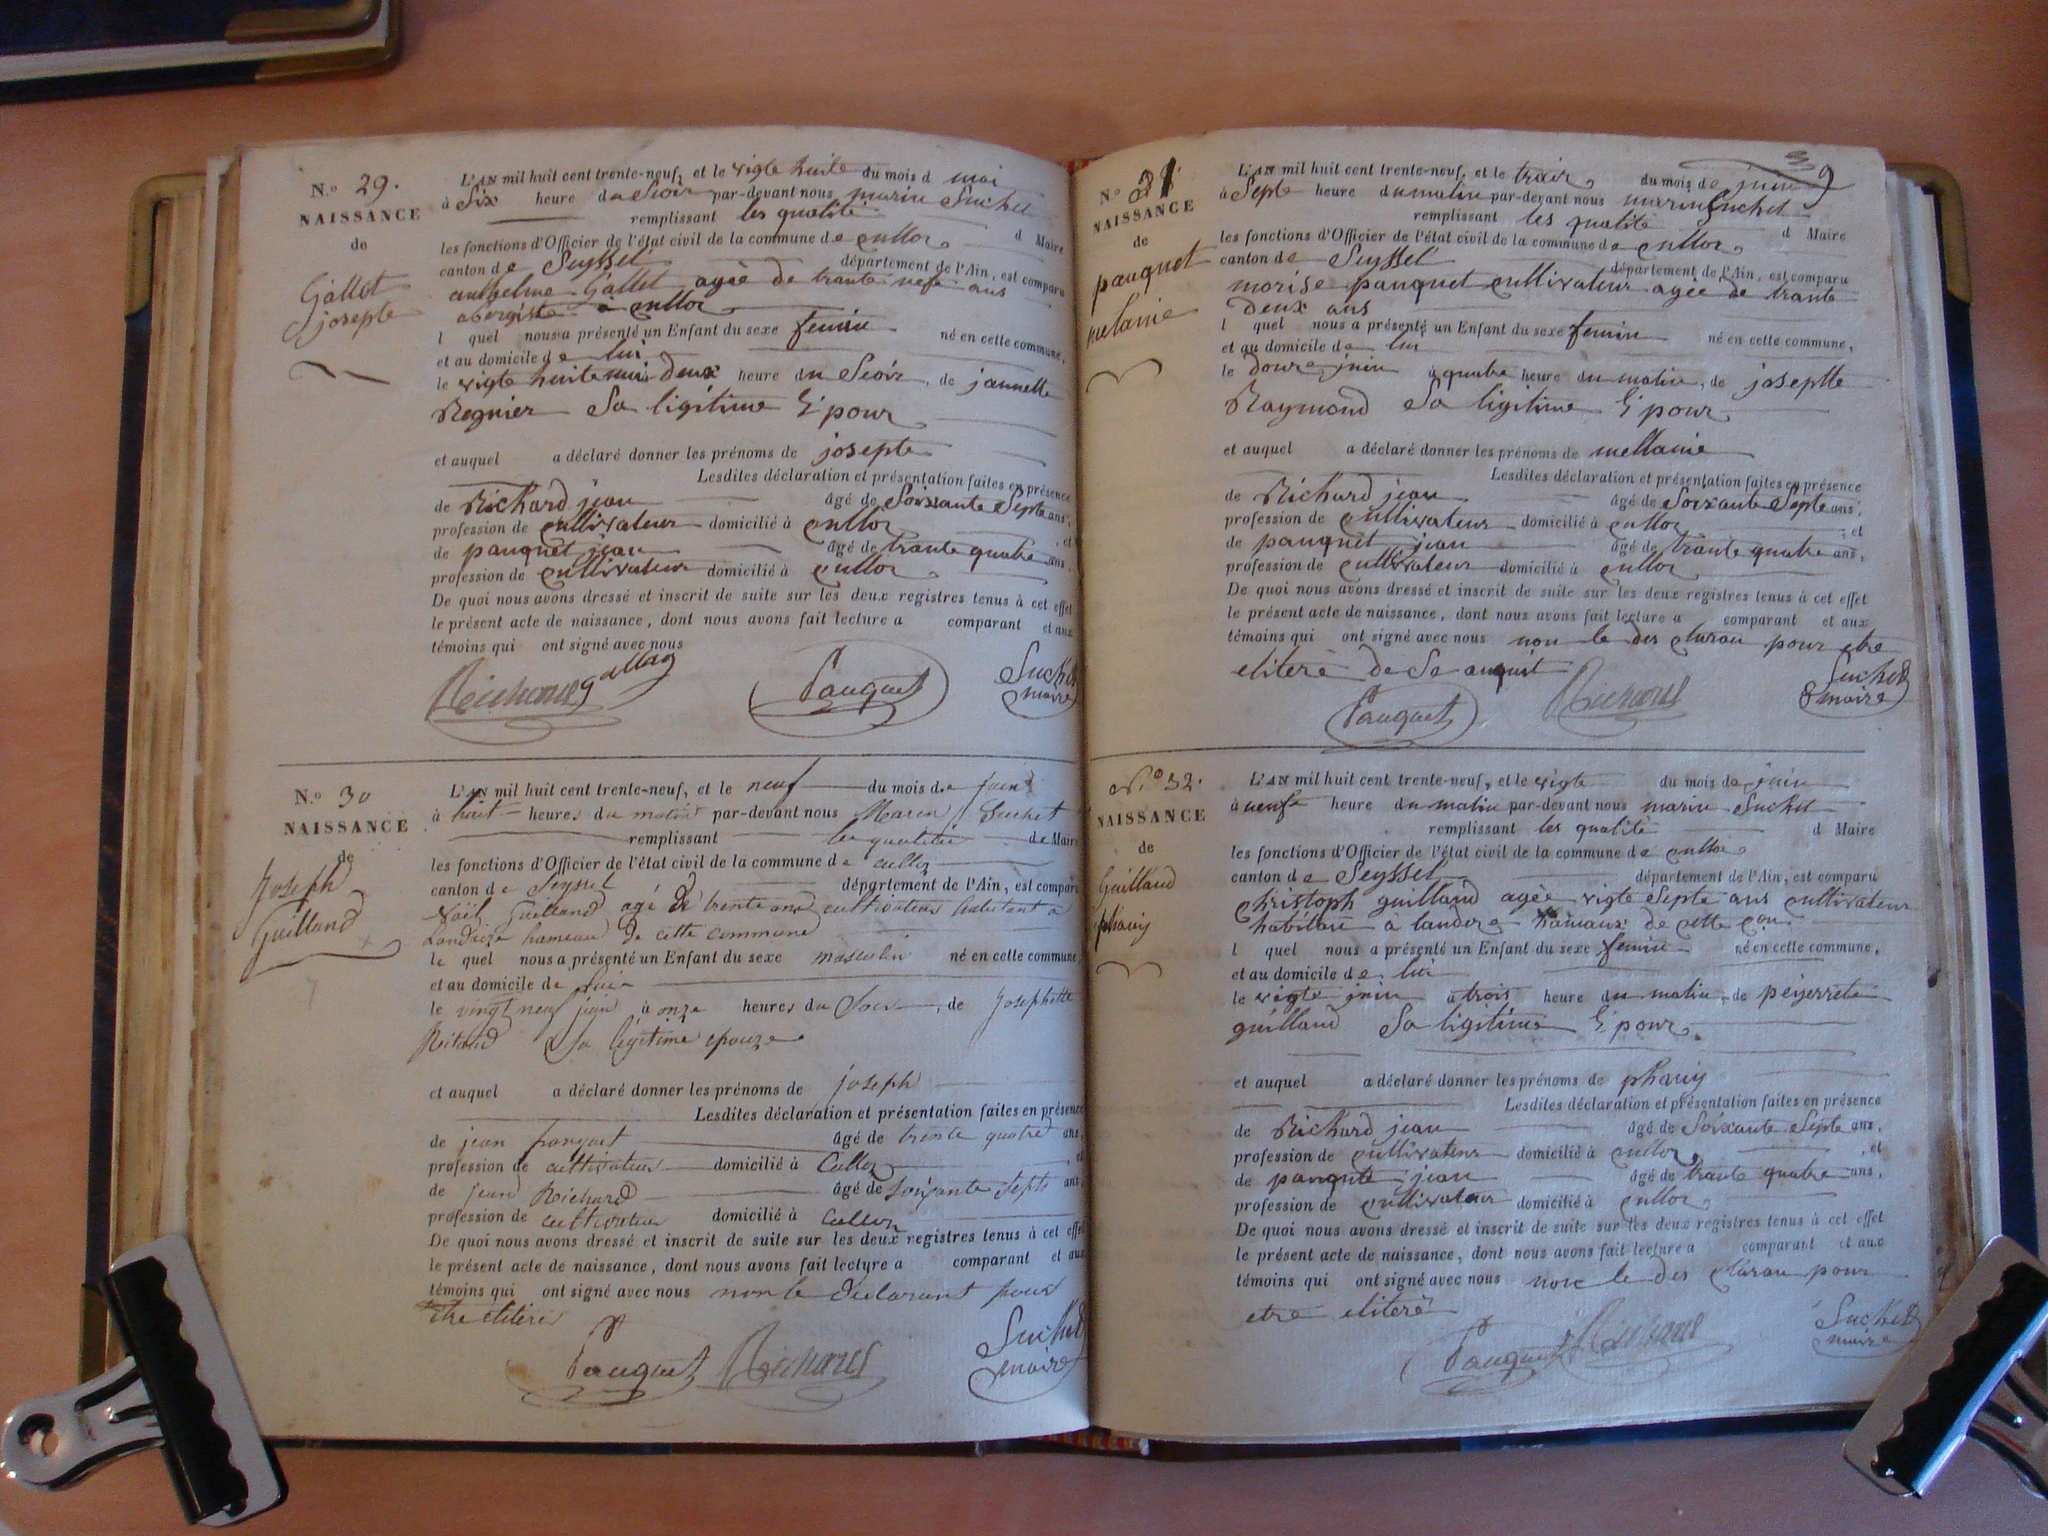 N.o 29.
NAISSANCE
de
Gallot
josepte
L'AN mil huit cent trente-neuf, et le vigte huite du mois d mai
à Six heure du Seoir par-devant nous marin Suchet
remplissant les qualité d Maire
les fonctions d'Officier de l'état civil de la commune de Culloz
canton de Seyssel département de l'Ain, est comparu
anthelme Gallet agée de trante nefe ans
abergiste à Culloz
l quel nous a présenté un Enfant du sexe feminin né en cette commune,
et au domicile de lui
le vigte huite mai à deux heure du Seoir, de jannette
Regnier Sa ligitime Epouz
et auquel a déclaré donner les prénoms de josepte
Lesdites déclaration et présentation faites en présence
de Richard jean âgé de Soixsante Septe ans,
profession de Cultivateur domicilié à Culloz, et
de pauquet jean âgé de trante quatre ans,
profession de Cultivateur domicilié à Culloz
De quoi nous avons dressé et inscrit de suite sur les deux registres tenus à cet effet
le présent acte de naissance, dont nous avons fait lecture a comparant et aux
témoins qui ont signé avec nous
Richard Pauquet Suchet
maire
N.o 30
NAISSANCE
de
Joseph
Guilland
L'AN mil huit cent trente-neuf, et le neuf du mois de juin
à huit heures du matin par-devant nous Marin Suchet
remplissant les qualités de Maire
les fonctions d'Officier de l'état civil de la commune de Culloz
canton de Seyssel département de l'Ain, est comparu
Noël Guilland agé de trente ans cultivateur habitant a
Landaize hameau de cette commune
le quel nous a présenté un Enfant du sexe masculin né en cette commune
et au domicile de lui
le vingt neuf juin à onze heures du Soir, de Josephette
Sa légitime épouze
et auquel a déclaré donner les prénoms de joseph
Lesdites déclaration et présentation faites en présence
de jean pauquet âgé de trente quatre ans,
profession de cultivateur domicilié à Culloz, et
de jean Richard âgé de soixante septs ans,
profession de cultivateur domicilié à Culloz
De quoi nous avons dressé et inscrit de suite sur les deux registres tenus à cet effet
le présent acte de naissance, dont nous avons fait lecture a comparant et aux
témoins qui ont signé avec nous non le déclarant pour
être elitéré
Pauquet Richard Suchet
maire
N.o 31
NAISSANCE
de
pauquet
melanie
L'AN mil huit cent trente-neuf, et le traiz du mois de juin
à Septe heure du matin par-devant nous marin Suchet
remplissant les qualité d Maire
les fonctions d'Officier de l'état civil de la commune de Culloz
canton de Seyssel département de l'Ain, est comparu
morise pauquet Cultivateur agée de trante
deux ans
l quel nous a présenté un Enfant du sexe feminin né en cette commune,
et au domicile de lui
le douze juin à quatre heure du matin, de joseptte
Raymond Sa ligitime Epouz
et auquel a déclaré donner les prénoms de mellanie
Lesdites déclaration et présentation faites en présence
de Richard jean âgé de Soixante Septe ans,
profession de Cultivateur domicilié à Culloz, et
de pauquet jean âgé de trante quatre ans,
profession de Cultivateur domicilié à Culloz
De quoi nous avons dressé et inscrit de suite sur les deux registres tenus à cet effet
le présent acte de naissance, dont nous avons fait lecture a comparant et aux
témoins qui ont signé avec nous non le des claran pour etre
eliteré de Se
Pauquet Richard Suchet
maire
N.o 32.
NAISSANCE
de
Guilland
phany
L'AN mil huit cent trente-neuf, et le vigte du mois de juin
à neufe heure du matin par-devant nous marin Suchet
remplissant les qualité d Maire
les fonctions d'Officier de l'état civil de la commune de Culloz
canton de Seyssel département de l'Ain, est comparu
Christoph guilland agée vigte Septe ans Cultivateur
habitan à landeze hamaux de cette
l quel nous a présenté un Enfant du sexe feminin né en cette commune,
et au domicile de lui
le vigte juin à trois heure du matin, de peyerrete
guilland Sa ligitime Epouz
et auquel a déclaré donner les prénoms de phany
Lesdites déclaration et présentation faites en présence
de Richard jean âgé de Soixante Septe ans,
profession de Cultivateur domicilié à Culloz, et
de pauqute jean âgé de trante quatre ans,
profession de Cultivateur domicilié à Culloz
De quoi nous avons dressé et inscrit de suite sur les deux registres tenus à cet effet
le présent acte de naissance, dont nous avons fait lecture a comparant et aux
témoins qui ont signé avec nous non le des claran pour
etre eliteré
Pauquet Richard Suchet
maire